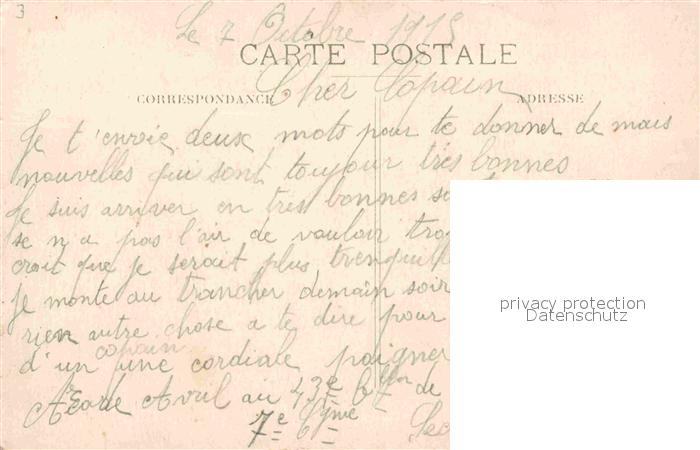 3
Le 7 Octobre 1915
CARTE POSTALE
Cher Copain
CORRESPONDANCE ADRESSE
Je t'envoie deux mots pour te donner de mais
nouvelles qui sont toujour très bonnes
Je suis arriver en tres bonnes
se n a pas l'air de vouloir
croit que je serait plus trenquille
je monte au trancher demain soir
rien autre chose a te dire pour
copain
d'un une cordiale poigner
Avril au 43e Bllon de
7e Cgnie Sec
privacy protection
Datenschutz